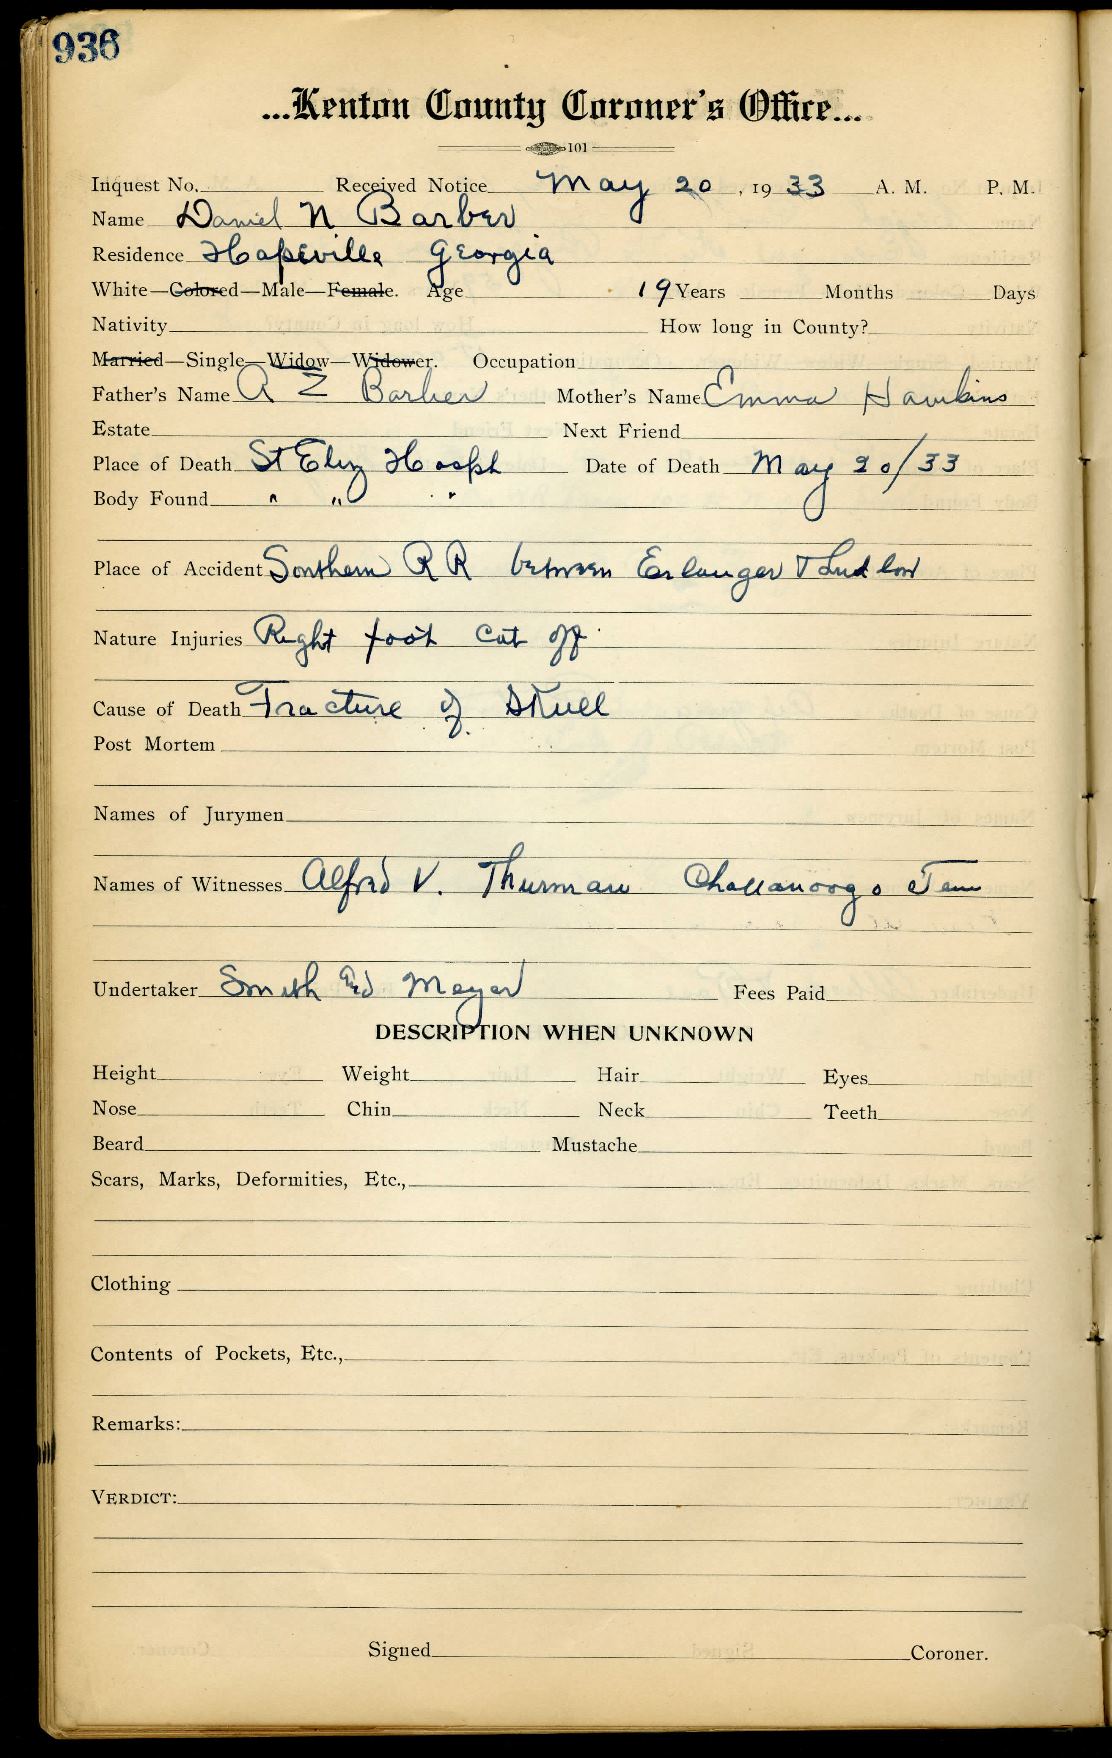 936
...Kenton County Coroner's Office...
101
Inquest No. Received Notice May 20, 1933 A. M. P. M.
Name Daniel N Barber
Residence Hapeville Georgia
White—Colored—Male—Female. Age 19 Years Months Days
Nativity How long in County?
Married—Single—Widow—Widower. Occupation
Father's Name A Z Barber Mother's Name Emma Hawkins
Estate Next Friend
Place of Death St Eliz Hosph Date of Death May 20/33
Body Found " " "
Place of Accident Southern RR between Erlanger & Ludlow
Nature Injuries Right foot cut off
Cause of Death Fracture of Skull
Post Mortem
Names of Jurymen
Names of Witnesses Alfred V. Thurman Chattanooga Tenn
Undertaker Smith Meyer Fees Paid
DESCRIPTION WHEN UNKNOWN
Height Weight Hair Eyes
Nose Chin Neck Teeth
Beard Mustache
Scars, Marks, Deformities, Etc.,
Clothing
Contents of Pockets, Etc.,
Remarks:
VERDICT:
Signed Coroner.